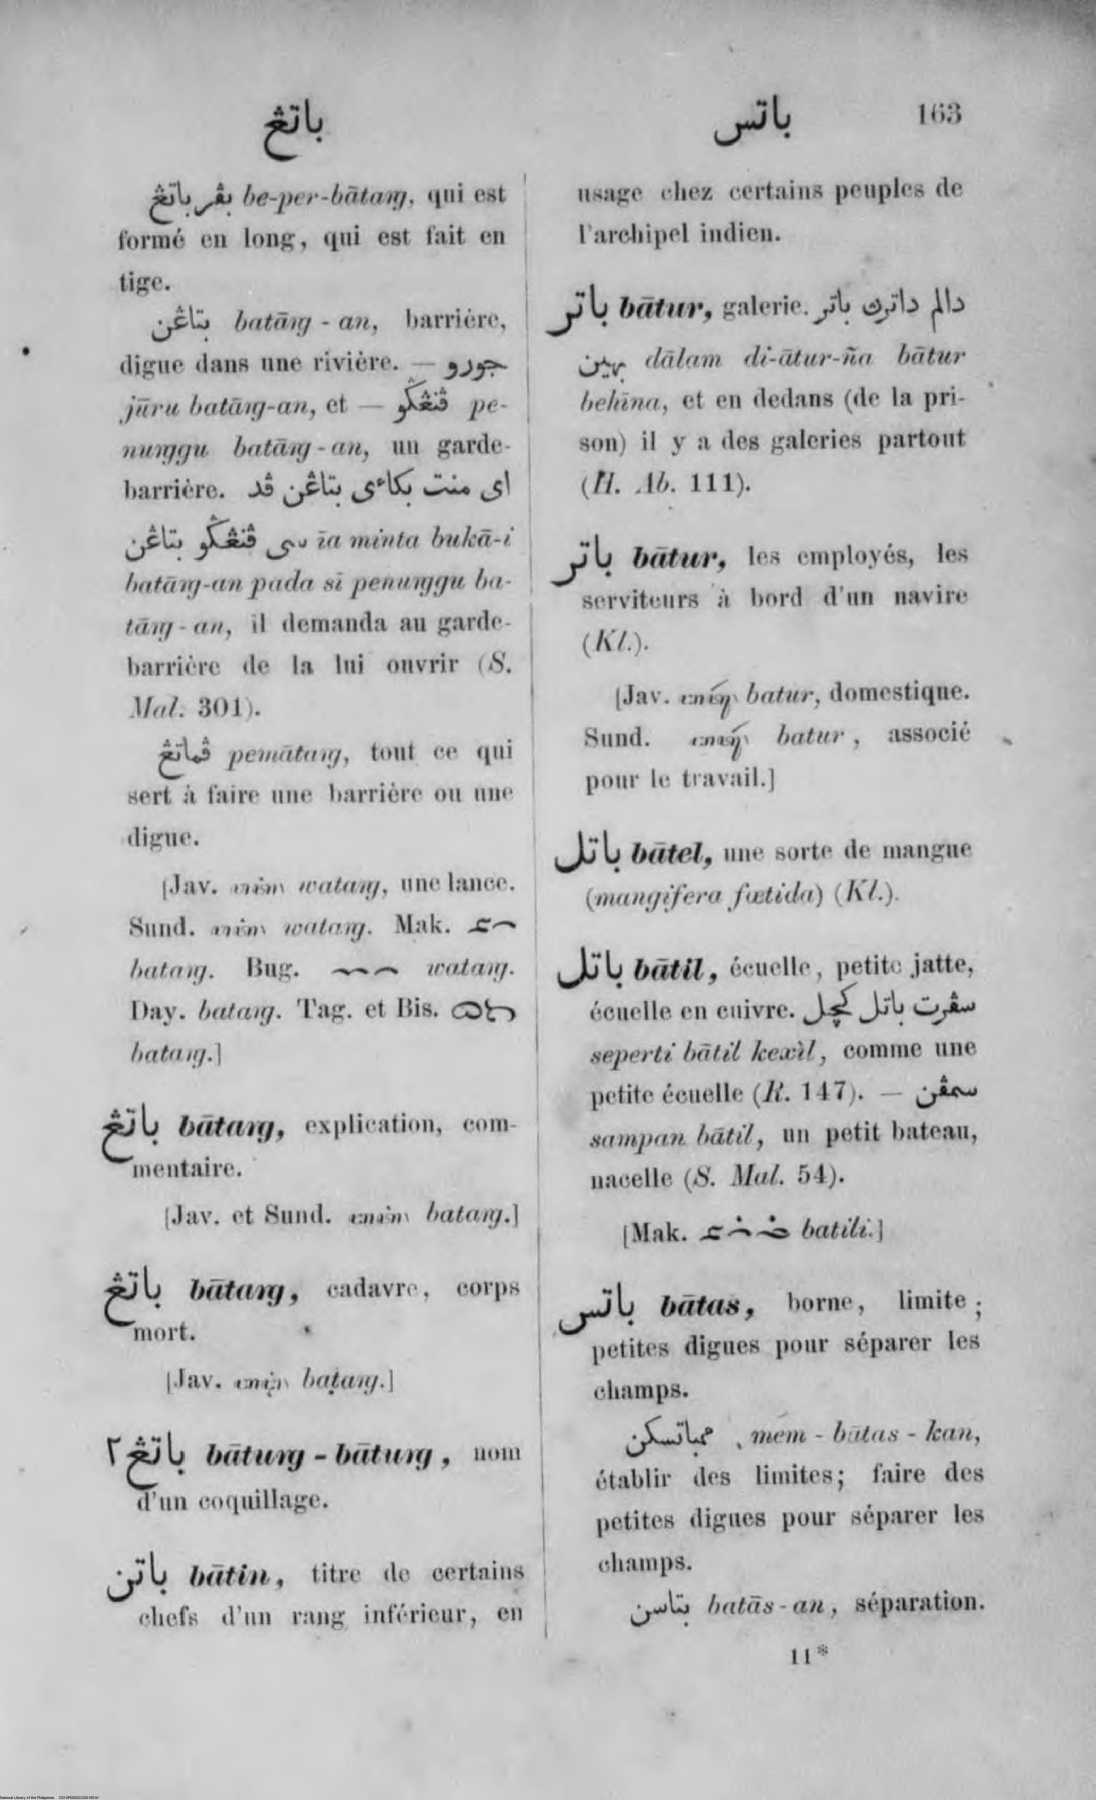 باتڠ
باتس 163
بڤرباتڠ be-per-bātaŋ, qui est
formé en long, qui est fait en
tige.
بتاڠن batāŋ-an, barrière,
digue dans une rivière. — جورو
jūru batāŋ-an, et — ڤنڠݢو pe-
nuŋgu batāŋ-an, un garde-
barrière. اى منت بكاءى بتاڠن ڤد
سى ڤنڠݢو بتاڠن īa minta bukā-i
batāŋ-an pada sī penuŋgu ba-
tāŋ-an, il demanda au garde-
barrière de la lui ouvrir (S.
Mal. 301).
ڤماتڠ pemātaŋ, tout ce qui
sert à faire une barrière ou une
digue.
[Jav. wataŋ, une lance.
Sund. wataŋ. Mak.
bataŋ. Bug. wataŋ.
Day. bataŋ. Tag. et Bis.
bataŋ.]
باتڠ bātaŋ, explication, com-
mentaire.
[Jav. et Sund. bataŋ.]
باتڠ bātaŋ, cadavre, corps
mort.
[Jav. baṭaŋ.]
باتڠ٢ bātuŋ-bātuŋ, nom
d'un coquillage.
باتن bātin, titre de certains
chefs d'un rang inférieur, en
usage chez certains peuples de
l'archipel indien.
باتر bātur, galerie. دالم داترڽ باتر
بهين dālam di-ātur-ña bātur
behīna, et en dedans (de la pri-
son) il y a des galeries partout
(H. Ab. 111).
باتر bātur, les employés, les
serviteurs à bord d'un navire
(Kl.).
[Jav. batur, domestique.
Sund. batur, associé
pour le travail.]
باتل bātel, une sorte de mangue
(mangifera fœtida) (Kl.).
باتل bātil, écuelle, petite jatte,
écuelle en cuivre. سڤرت باتل كچل
seperti bātil kexìl, comme une
petite écuelle (R. 147). — سمڤن
sampan bātil, un petit bateau,
nacelle (S. Mal. 54).
[Mak. batili.]
باتس bātas, borne, limite;
petites digues pour séparer les
champs.
ممباتسكن mem-bātas-kan,
établir des limites; faire des
petites digues pour séparer les
champs.
بتاسن batās-an, séparation.
11*